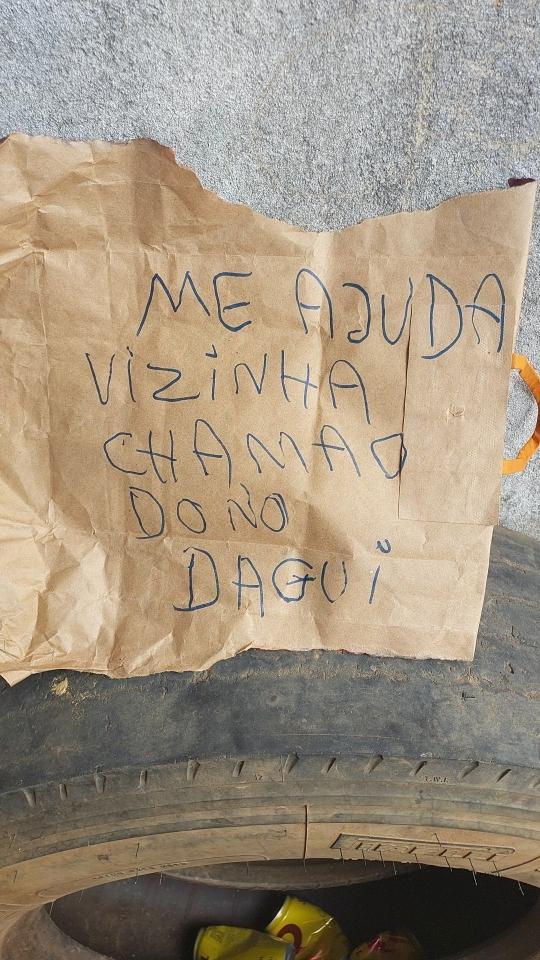 ME AJUDA
VIZINHA
CHAMAO
DOÑO
DAGUI
T.W.I.